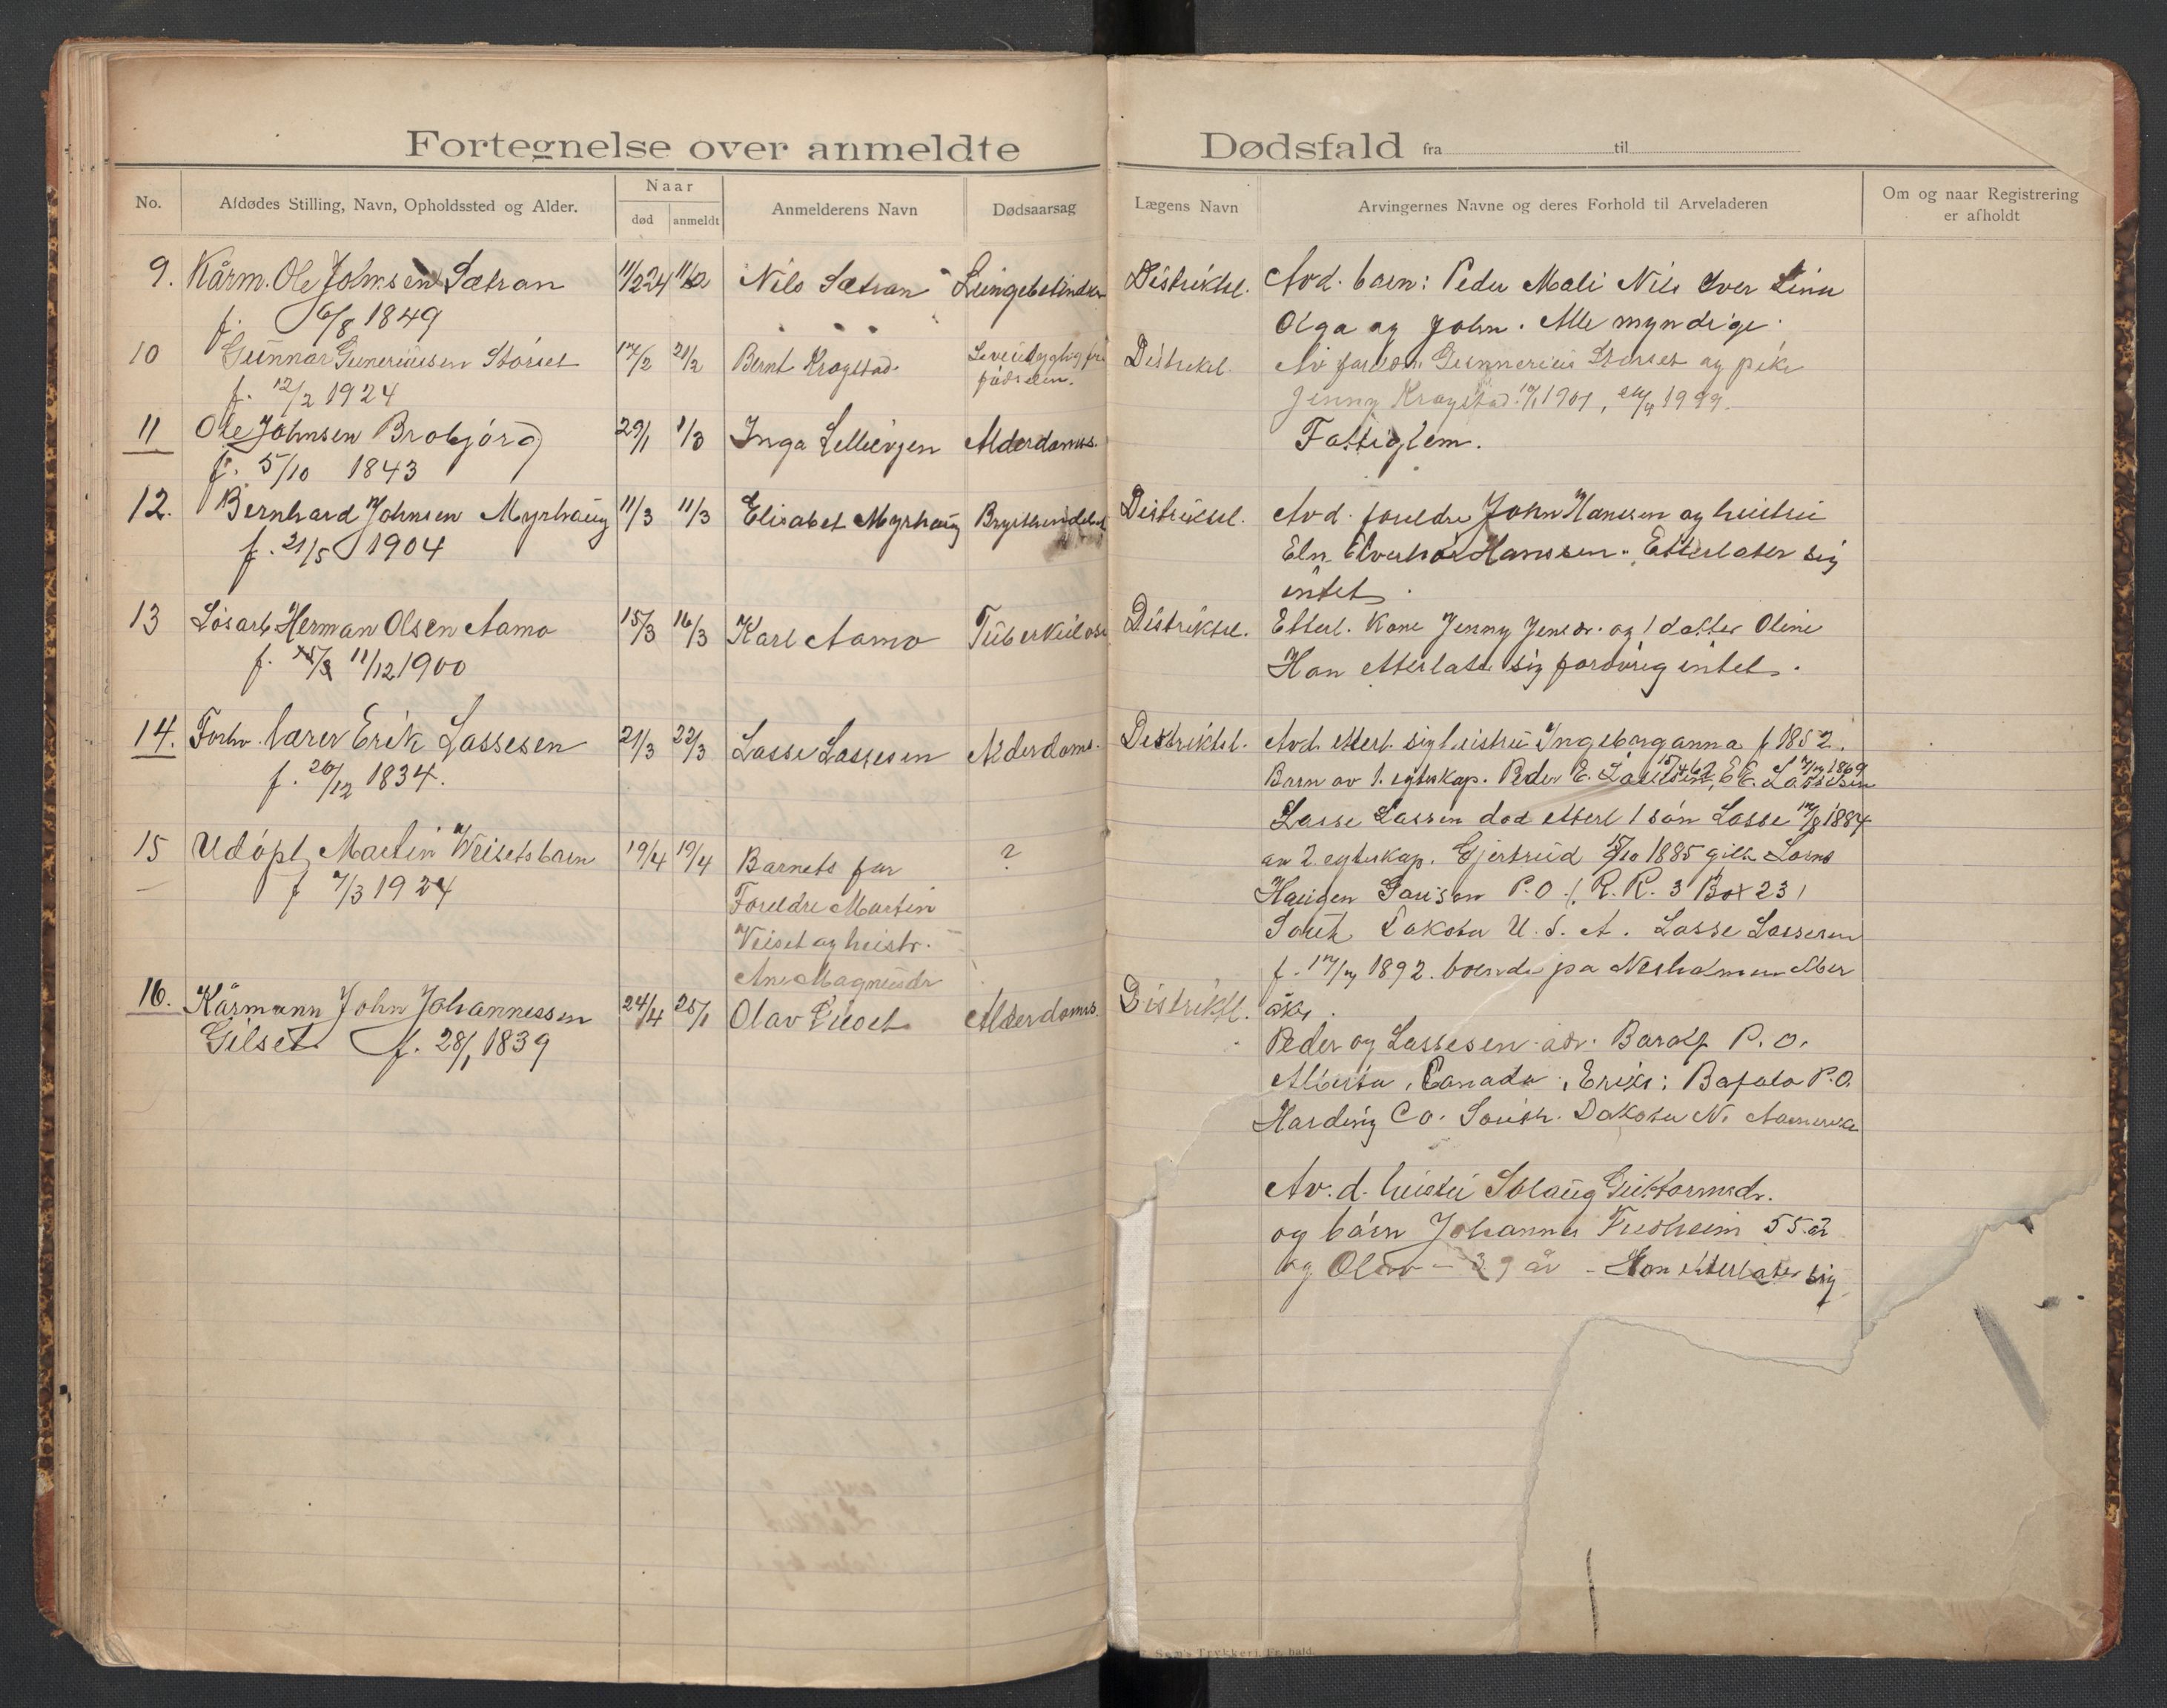 Fortegnelse over anmeldte Dødsfald fra til
No.
Afdødes Stilling, Navn, Opholdssted og Alder.
Naar
død
anmeldt
Anmelderens Navn
Dødsaarsag
Lægens Navn
Arvingernes Navne og deres Forhold til Arveladeren
Om og naar Registrering
er afholdt
9. Kårm. Ole Johnsen Sætran 11/2 24 11/2 Nils Sætran Distriktsl. Avd. barn: Peder Mali Nils Iver
f. 6/8 1849 Olga og John. Alle myndige.
10 Gunnar Storset 17/2 21/2 Bernt Krogstad Distriktsl. Storset og pike
f. 12/2 1924 fødselen. Jenny Krogstad
11 Ole Johnsen Brobjørg 29/1 1/3 Inga Alderdoms. Fattiglem.
f. 5/10 1843
12. Bernhard Johnsen Myrhaug 11/3 11/3 Elisabet Myrhaug Distriktsl. Avd. foreldre John Hansen og hustru
f. 21/5 1904 Hanssen. Etterlater sig
intet.
13 Løsarb Herman Olsen Aamo 15/3 16/3 Karl Aamo Tuberkulose Distriktsl. Etterl. kone Jenny Jensdr. og 1 datter Oline
f. 11/12 1900 Han etterlater sig forøvrig intet.
14. Forhv. lærer Erik Lassesen 21/3 22/3 Lasse Lassesen Alderdoms. Distriktsl. Avd. etterl. sig hustru Ingeborganna f 1852.
f. 26/12 1834. Barn av 1. egteskap. Peder E. Lassesen E. Lassesen 1869
Lasse Lassen død etterl 1 søn Lasse 1884
15 Udøpt Martin Veisets barn 19/4 19/4 Barnets far ? av 2. egteskap. Gjertrud 1885 gift
f 7/3 1924 Foreldre Martin Haugen P.O. R. R. 3 Box 231
Veiset og hustr. South Dakota U. S. A. Lasse Lassesen
Ane Magnusdr f. 1892. boende på
16. Kårmann John Johannessen 24/4 Olav Alderdoms. Distriktsl.
Gilset f. 28/1 1839
Peder og Lassesen adr. P. O.
Alberta, Canada, Eriks: Bafalo P.O.
Harding Co. South. Dakota N. Amerika
Av. d. hustru Solaug Guttormsdr.
og barn Johannes 55 år
og Olav – 39 år – Han etterlater sig